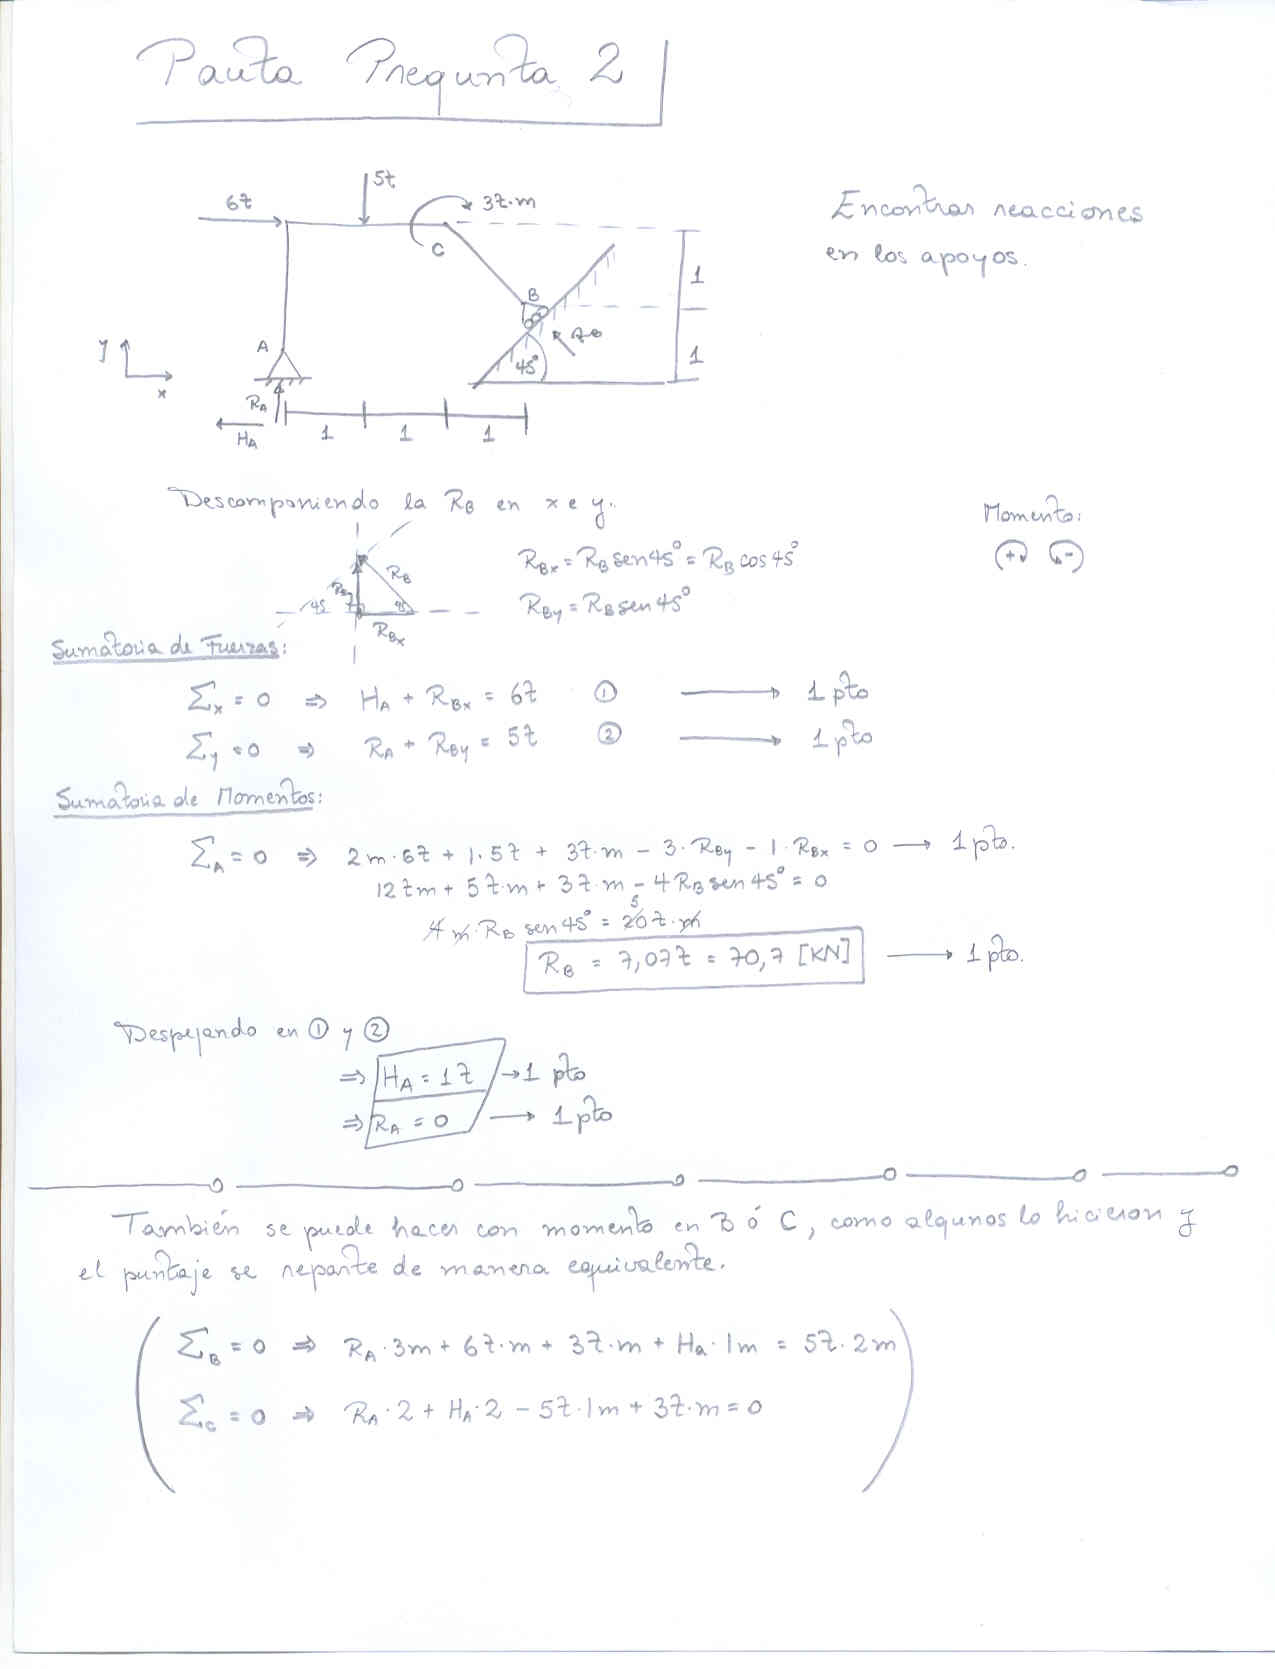 Pauta Pregunta 2
6t
5t
3t·m
C
B
R_B
45°
1
1
A
y
x
R_A
H_A
1
1
1
Encontrar reacciones
en los apoyos.
Descomponiendo la R_B en x e y.
Momento:
(+) (-)
R_B
R_By
45
45
R_Bx
R_Bx = R_B sen45° = R_B cos45°
R_By = R_B sen45°
Sumatoria de Fuerzas:
Σ_x = 0 ⇒ H_A + R_Bx = 6t ① → 1 pto
Σ_y = 0 ⇒ R_A + R_By = 5t ② → 1 pto
Sumatoria de Momentos:
Σ_A = 0 ⇒ 2m·6t + 1·5t + 3t·m - 3·R_By - 1·R_Bx = 0 → 1 pto.
12tm + 5t·m + 3t·m - 4R_B sen45° = 0
4m·R_B sen45° = 20t·m
5
R_B = 7,07t = 70,7 [KN] → 1 pto.
Despejando en ① y ②
⇒ H_A = 1t → 1 pto
⇒ R_A = 0 → 1 pto
También se puede hacer con momento en B ó C, como algunos lo hicieron y
el puntaje se reparte de manera equivalente.
Σ_B = 0 ⇒ R_A·3m + 6t·m + 3t·m + Ha·1m = 5t·2m
Σ_c = 0 ⇒ R_A·2 + H_A·2 - 5t·1m + 3t·m = 0